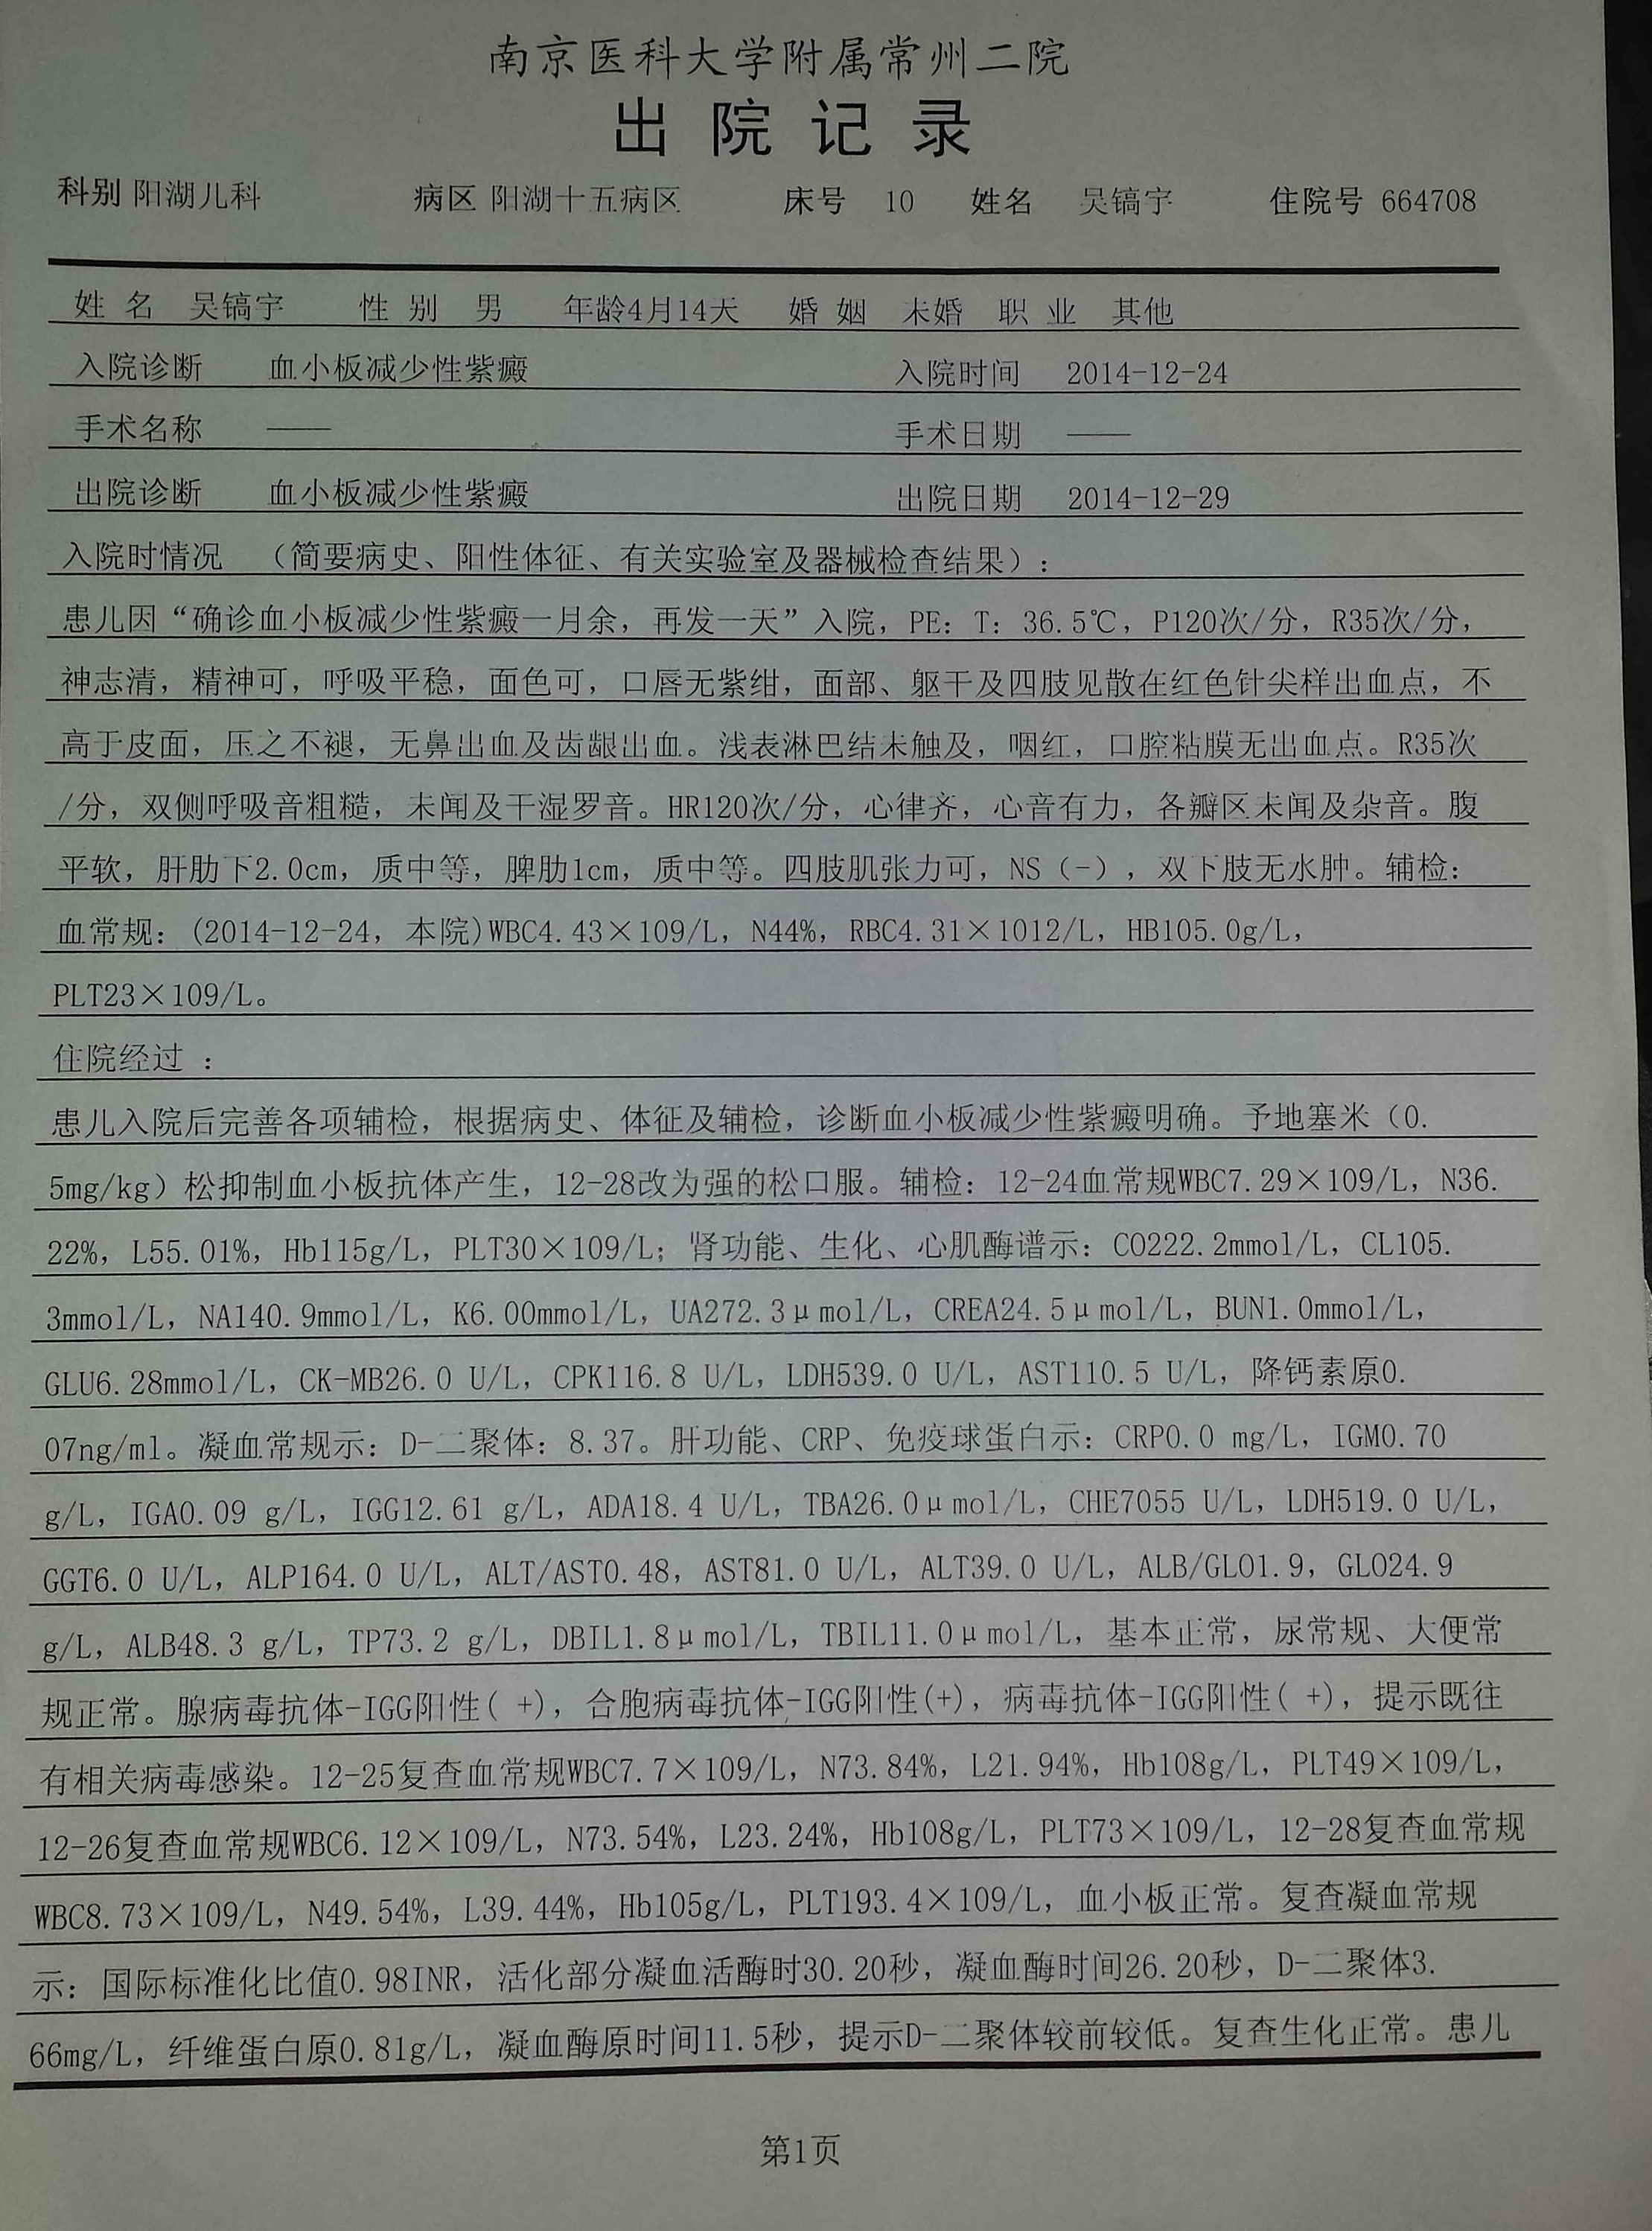 南京医科大学附属常州二院
出院记录
科别 阳湖儿科 病区 阳湖十五病区 床号 10 姓名 吴镐宇 住院号 664708
姓 名 吴镐宇 性 别 男 年龄4月14天 婚 姻 未婚 职 业 其他
入院诊断 血小板减少性紫癜 入院时间 2014-12-24
手术名称 —— 手术日期 ——
出院诊断 血小板减少性紫癜 出院日期 2014-12-29
入院时情况 （简要病史、阳性体征、有关实验室及器械检查结果）：
患儿因“确诊血小板减少性紫癜一月余，再发一天”入院，PE：T：36.5℃，P120次/分，R35次/分，
神志清，精神可，呼吸平稳，面色可，口唇无紫绀，面部、躯干及四肢见散在红色针尖样出血点，不
高于皮面，压之不褪，无鼻出血及齿龈出血。浅表淋巴结未触及，咽红，口腔粘膜无出血点。R35次
/分，双侧呼吸音粗糙，未闻及干湿罗音。HR120次/分，心律齐，心音有力，各瓣区未闻及杂音。腹
平软，肝肋下2.0cm，质中等，脾肋1cm，质中等。四肢肌张力可，NS（-），双下肢无水肿。辅检：
血常规：(2014-12-24，本院)WBC4.43×109/L，N44%，RBC4.31×1012/L，HB105.0g/L，
PLT23×109/L。
住院经过 ：
患儿入院后完善各项辅检，根据病史、体征及辅检，诊断血小板减少性紫癜明确。予地塞米（0.
5mg/kg）松抑制血小板抗体产生，12-28改为强的松口服。辅检：12-24血常规WBC7.29×109/L，N36.
22%，L55.01%，Hb115g/L，PLT30×109/L；肾功能、生化、心肌酶谱示：CO222.2mmol/L，CL105.
3mmol/L，NA140.9mmol/L，K6.00mmol/L，UA272.3μmol/L，CREA24.5μmol/L，BUN1.0mmol/L，
GLU6.28mmol/L，CK-MB26.0 U/L，CPK116.8 U/L，LDH539.0 U/L，AST110.5 U/L，降钙素原0.
07ng/ml。凝血常规示：D-二聚体：8.37。肝功能、CRP、免疫球蛋白示：CRP0.0 mg/L，IGM0.70
g/L，IGA0.09 g/L，IGG12.61 g/L，ADA18.4 U/L，TBA26.0μmol/L，CHE7055 U/L，LDH519.0 U/L，
GGT6.0 U/L，ALP164.0 U/L，ALT/AST0.48，AST81.0 U/L，ALT39.0 U/L，ALB/GLO1.9，GLO24.9
g/L，ALB48.3 g/L，TP73.2 g/L，DBIL1.8μmol/L，TBIL11.0μmol/L，基本正常，尿常规、大便常
规正常。腺病毒抗体-IGG阳性( +)，合胞病毒抗体-IGG阳性(+)，病毒抗体-IGG阳性( +)，提示既往
有相关病毒感染。12-25复查血常规WBC7.7×109/L，N73.84%，L21.94%，Hb108g/L，PLT49×109/L，
12-26复查血常规WBC6.12×109/L，N73.54%，L23.24%，Hb108g/L，PLT73×109/L，12-28复查血常规
WBC8.73×109/L，N49.54%，L39.44%，Hb105g/L，PLT193.4×109/L，血小板正常。复查凝血常规
示：国际标准化比值0.98INR，活化部分凝血活酶时30.20秒，凝血酶时间26.20秒，D-二聚体3.
66mg/L，纤维蛋白原0.81g/L，凝血酶原时间11.5秒，提示D-二聚体较前较低。复查生化正常。患儿
第1页